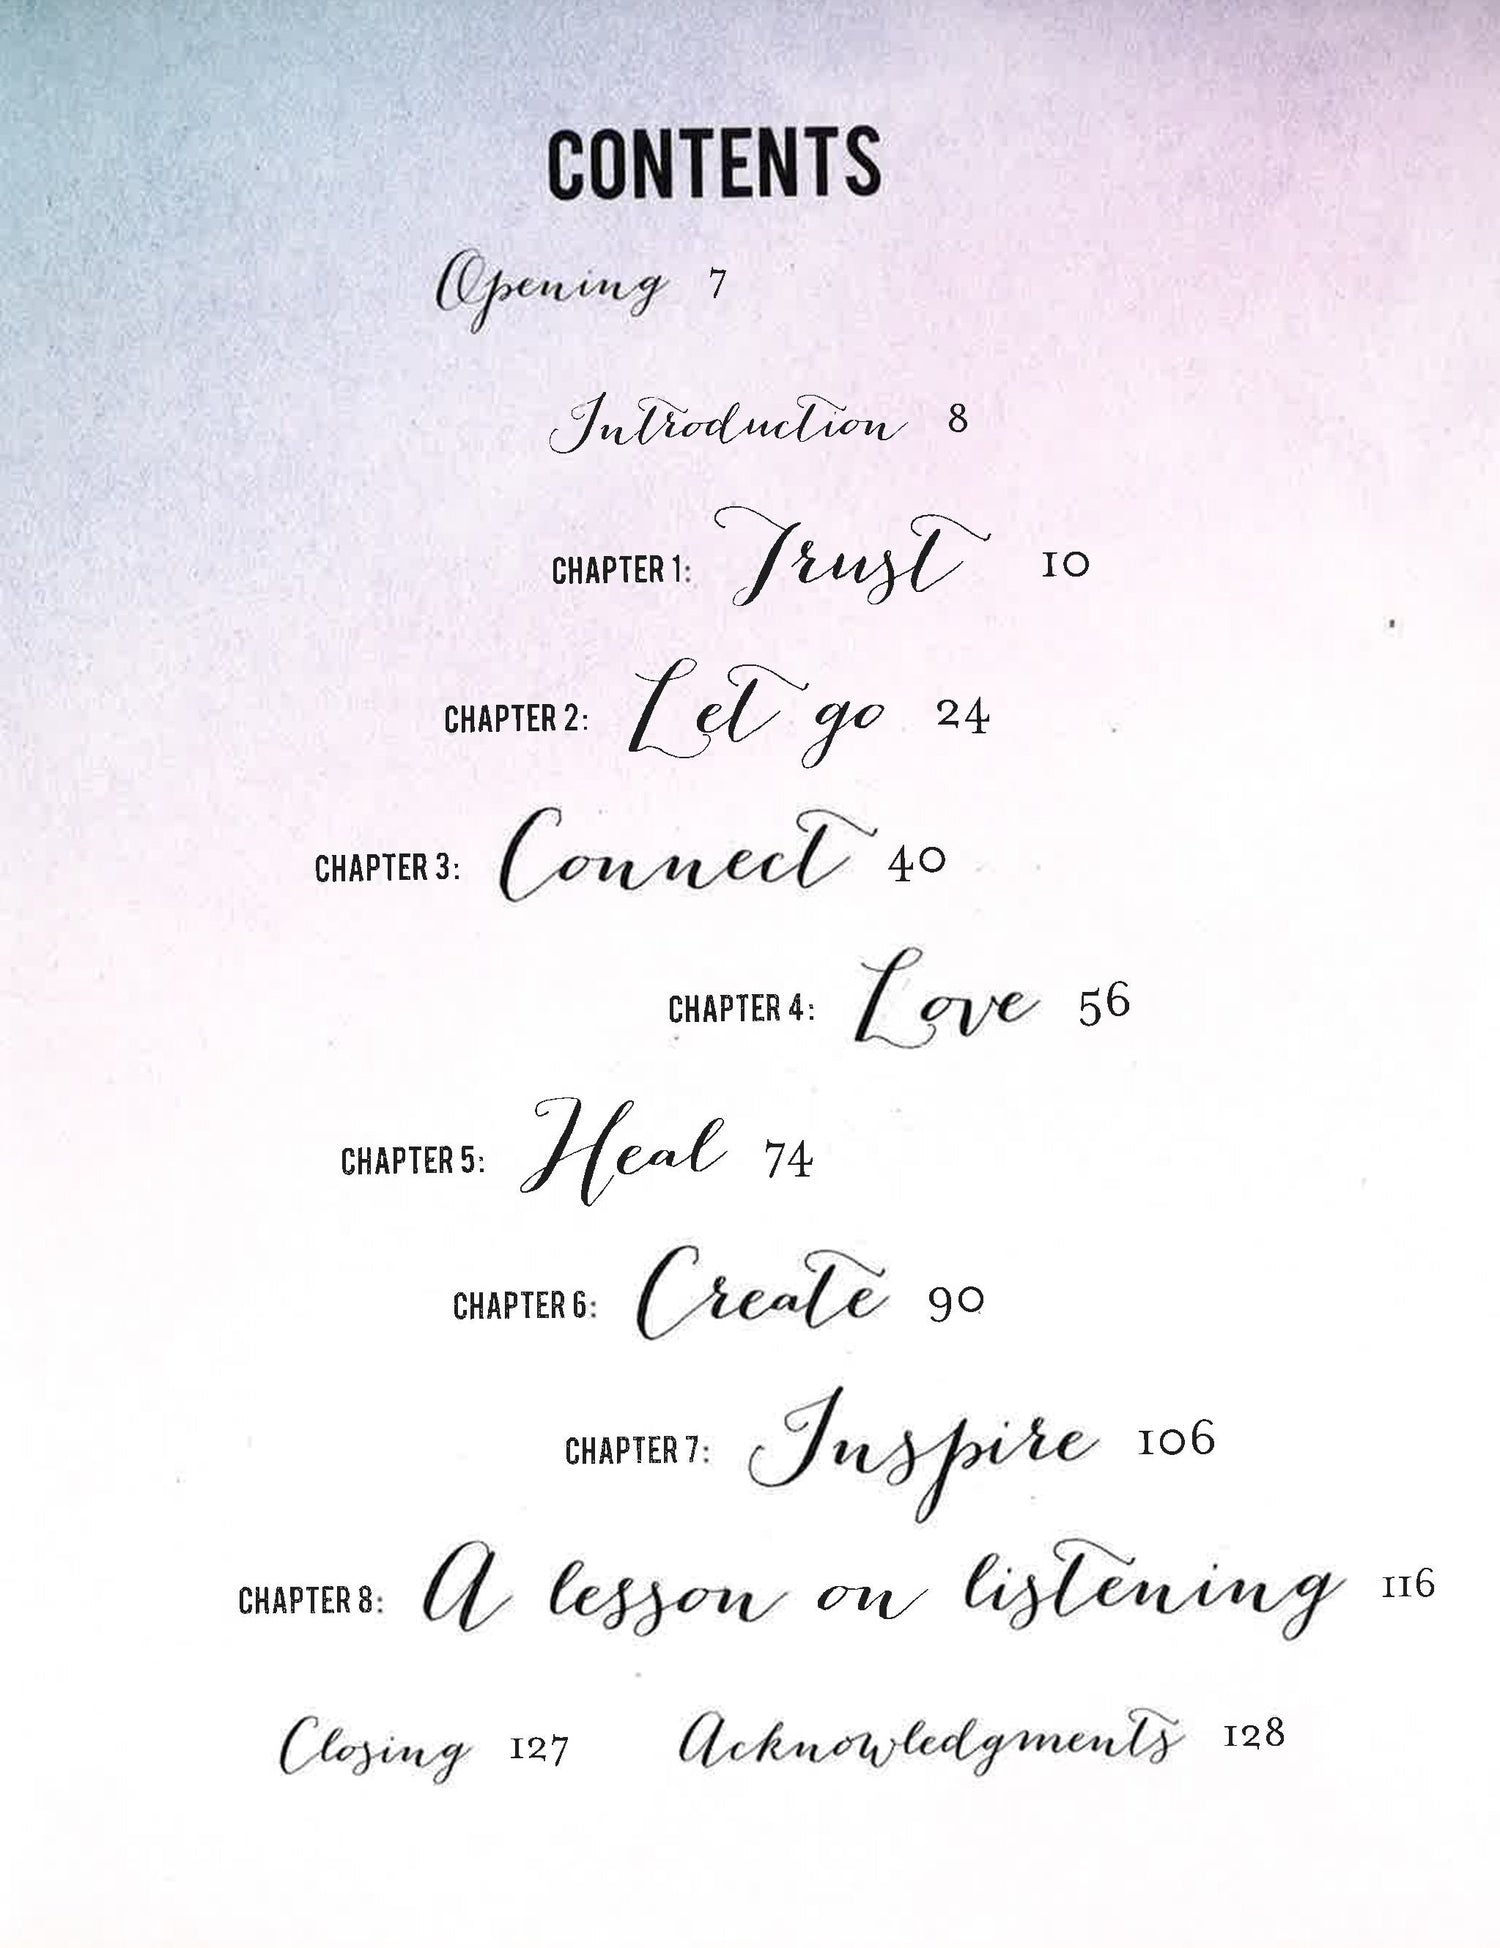 CONTENTS
Opening 7
Introduction 8
CHAPTER 1: Trust 10
CHAPTER 2: Let go 24
CHAPTER 3: Connect 40
CHAPTER 4: Love 56
CHAPTER 5: Heal 74
CHAPTER 6: Create 90
CHAPTER 7: Inspire 106
CHAPTER 8: A lesson on listening 116
Closing 127 Acknowledgments 128